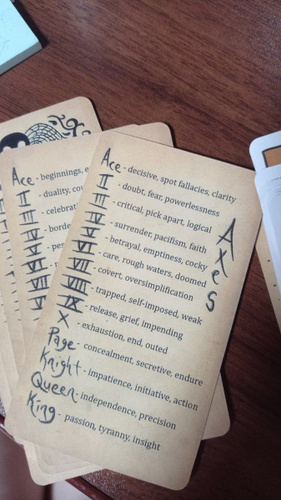 Ace - decisive, spot fallacies, clarity
II - doubt, fear, powerlessness
III - critical, pick apart, logical
IV - surrender, pacifism, faith
V - betrayal, emptiness, cocky
VI - care, rough waters, doomed
VII - covert, oversimplification
VIII - trapped, self-imposed, weak
IX - release, grief, impending
X - exhaustion, end, outed
Page - concealment, secretive, endure
Knight - impatience, initiative, action
Queen - independence, precision
King - passion, tyranny, insight
Axes
Ace - beginnings,
II - duality,
III -
IV -
V -
VI
VII
VIII